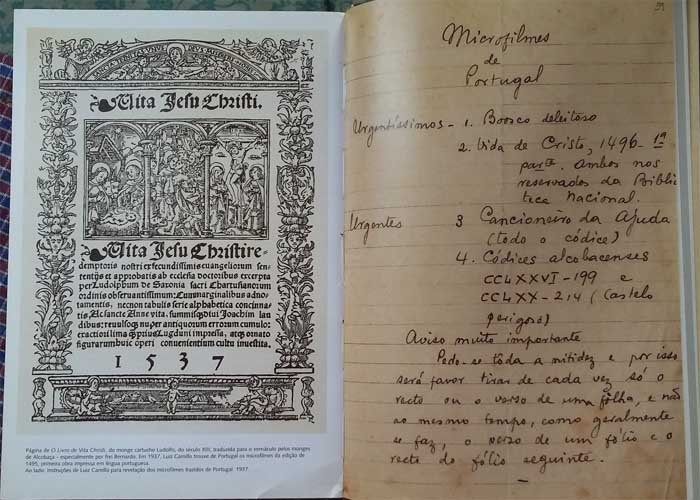 Vita Jesu Christi.
Vita Jesu Christi re-
demptoris nostri ex fecundissimis euangeliorum sen-
tentijs et approbatis ab ecclesia doctoribus excerpta
per Ludolphum de Saxonia sacri Carthusianorum
ordinis obseruantissimum: Cum marginalibus adno-
tamentis, necnon tabulis serie alphabetica concinna-
tis Ac sancte Anne vita, summisque diui Joachim lau
dibus:
1537
Página de O Livro de Vita Christi, do monge cartuxo Ludolfo, do século XIII, traduzida para o vernáculo pelos monges
de Alcobaça - especialmente por frei Bernardo. Em 1937, Luiz Camillo trouxe de Portugal os microfilmes da edição de
1495, primeira obra impressa em língua portuguesa.
Ao lado: Instruções de Luiz Camillo para revelação dos microfilmes trazidos de Portugal 1937.
Microfilmes
de
Portugal
Urgentíssimos - 1. Boosco deleitoso
2. Vida de Cristo, 1496 - 1ª
parte. Ambos nos
reservados da Biblio
teca Nacional.
Urgentes 3 Cancioneiro da Ajuda
(todo o códice)
4. Códices alcobacenses
CCLXXVI - 199 e
CCLXX - 214 (Castelo
perigoso)
Aviso muito importante
Pede-se tôda a nitidez e por isso
será favor tirar de cada vez só o
recto ou o verso de uma fôlha, e não
ao mesmo tempo, como geralmente
se faz, o verso de um fólio e o
recto do fólio seguinte.